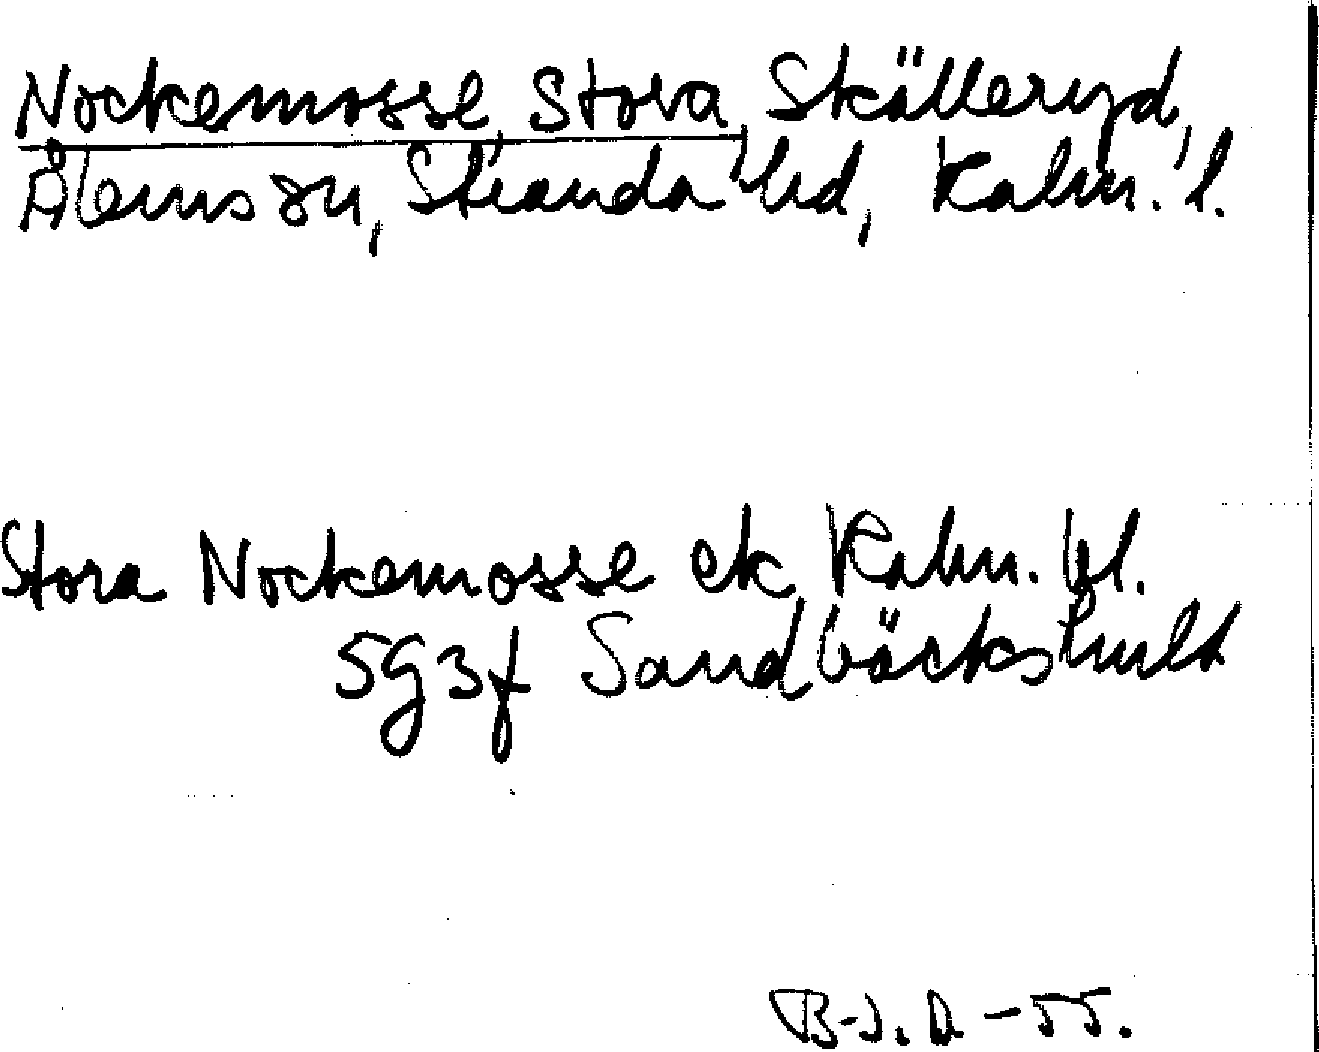 Nockemosse, Stora, Skälleryd,
Ålems sn, Stranda hd, Kalm. l.
Stora Nockemosse ek Kalm. bl.
5G3f Sandbäckshult
B-J. A -55.